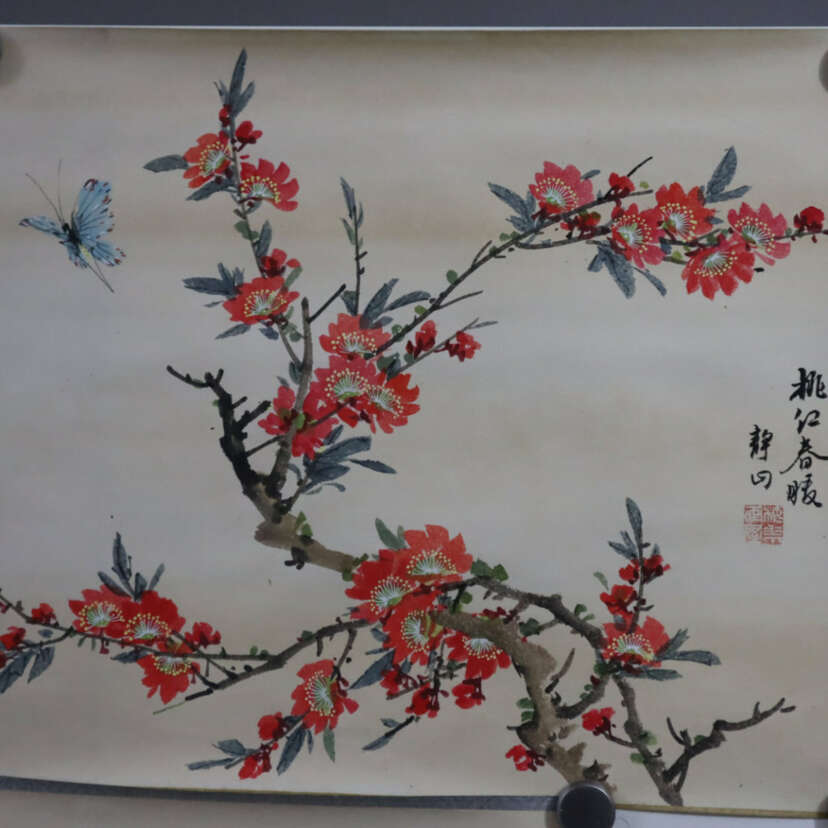 桃红春暖
静山